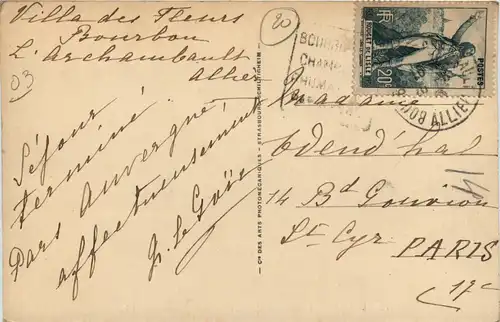 Villa des Fleurs
Bourbon
L'Archambault
Allier
03
Séjour
terminé.
Pars Auvergne!
affectueusement
20
BOURBON
CHAM
HUMA
POSTES
ROUGET DE LISLE
RF
20c
ALLIER
Cie DES ARTS PHOTOMÉCARIQUES - STRASBOURG-SCHILTIGHEIM
Madame
14 Bd Gouvion
St Cyr PARIS
17e
14